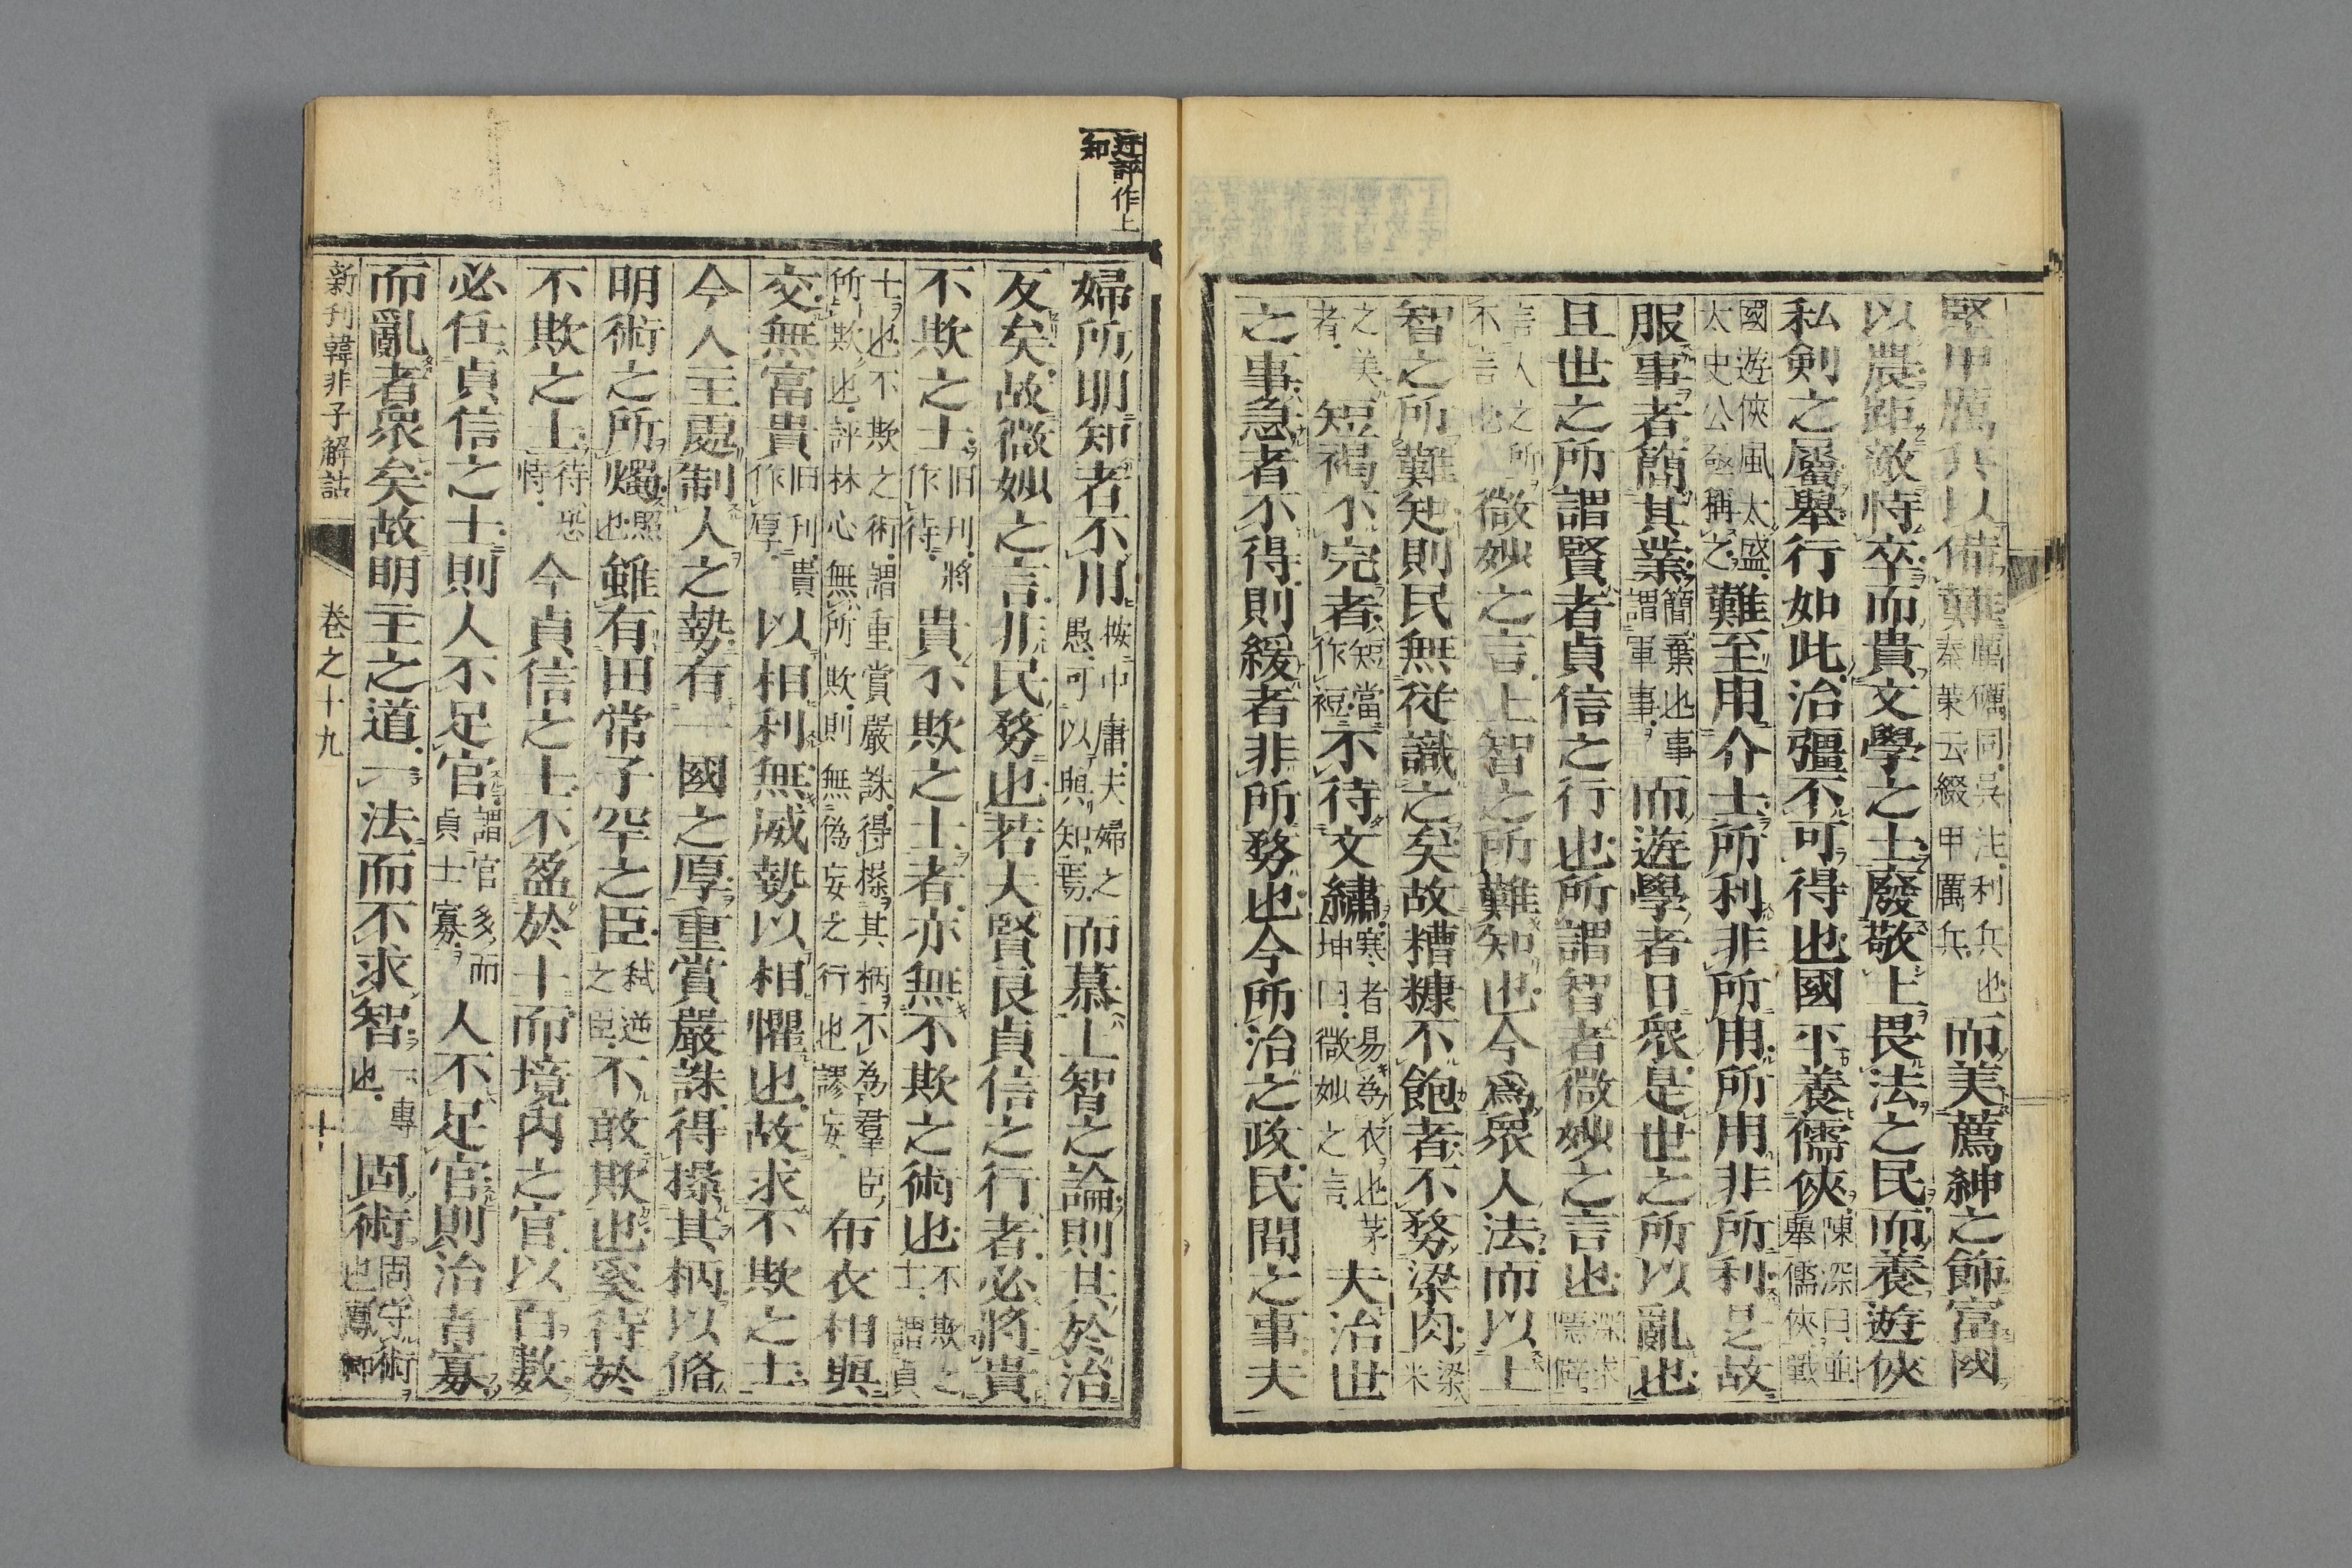 堅甲厲兵以備難厲礪同吳注利兵也秦策云綴甲厲兵而美薦紳之飾富國
以農距敵恃卒而貴文學之士廢敬上畏法之民而養遊俠
私劍之屬舉行如此治彊不可得也國平養儒俠陳深曰並舉儒俠戰
國遊俠風太盛太史公亟稱之難至用介士所利非所用所用非所利是故
服事者簡其業簡棄也事謂軍事而遊學者日眾是世之所以亂也
且世之所謂賢者貞信之行也所謂智者微妙之言也深求隱僻
言人之所不言也微妙之言上智之所難知也今爲眾人法而以上
智之所難知則民無從識之矣故糟糠不飽者不務梁肉梁米
之美者短褐不完者短當作裋不待文繡寒者易為衣也茅坤曰微妙之言夫治世
之事急者不得則緩者非所務也今所治之政民間之事夫
近評作上知
婦所明知者不用按中庸夫婦之愚可以與知焉而慕上智之論則其於治
反矣故微妙之言非民務也若夫賢良貞信之行者必將貴
不欺之士旧刊將作待貴不欺之士者亦無不欺之術也不欺之士謂貞
士也不欺之術謂重賞嚴誅得操其柄不為羣臣所欺也評林心無所欺則無偽妄之行也謬妄布衣相與
交無富貴旧刊貴作厚以相利無威勢以相懼也故求不欺之士
今人主處制人之勢有一國之厚重賞嚴誅得操其柄以脩
明術之所燭照也雖有田常子罕之臣弒逆之臣不敢欺也奚待於
不欺之士待恐恃今貞信之士不盈於十而境內之官以百數
必任貞信之士則人不足官謂官多而貞士寡人不足官則治者寡
而亂者眾矣故明主之道一法而不求智一專也固術固守術也
新刊韓非子解詁　卷之十九　十